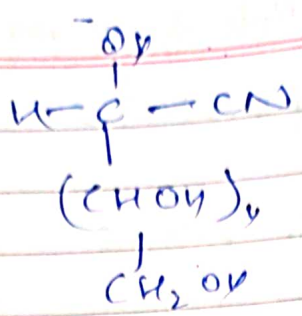 OH
H - C - CN
(CHOH)₄
CH₂OH